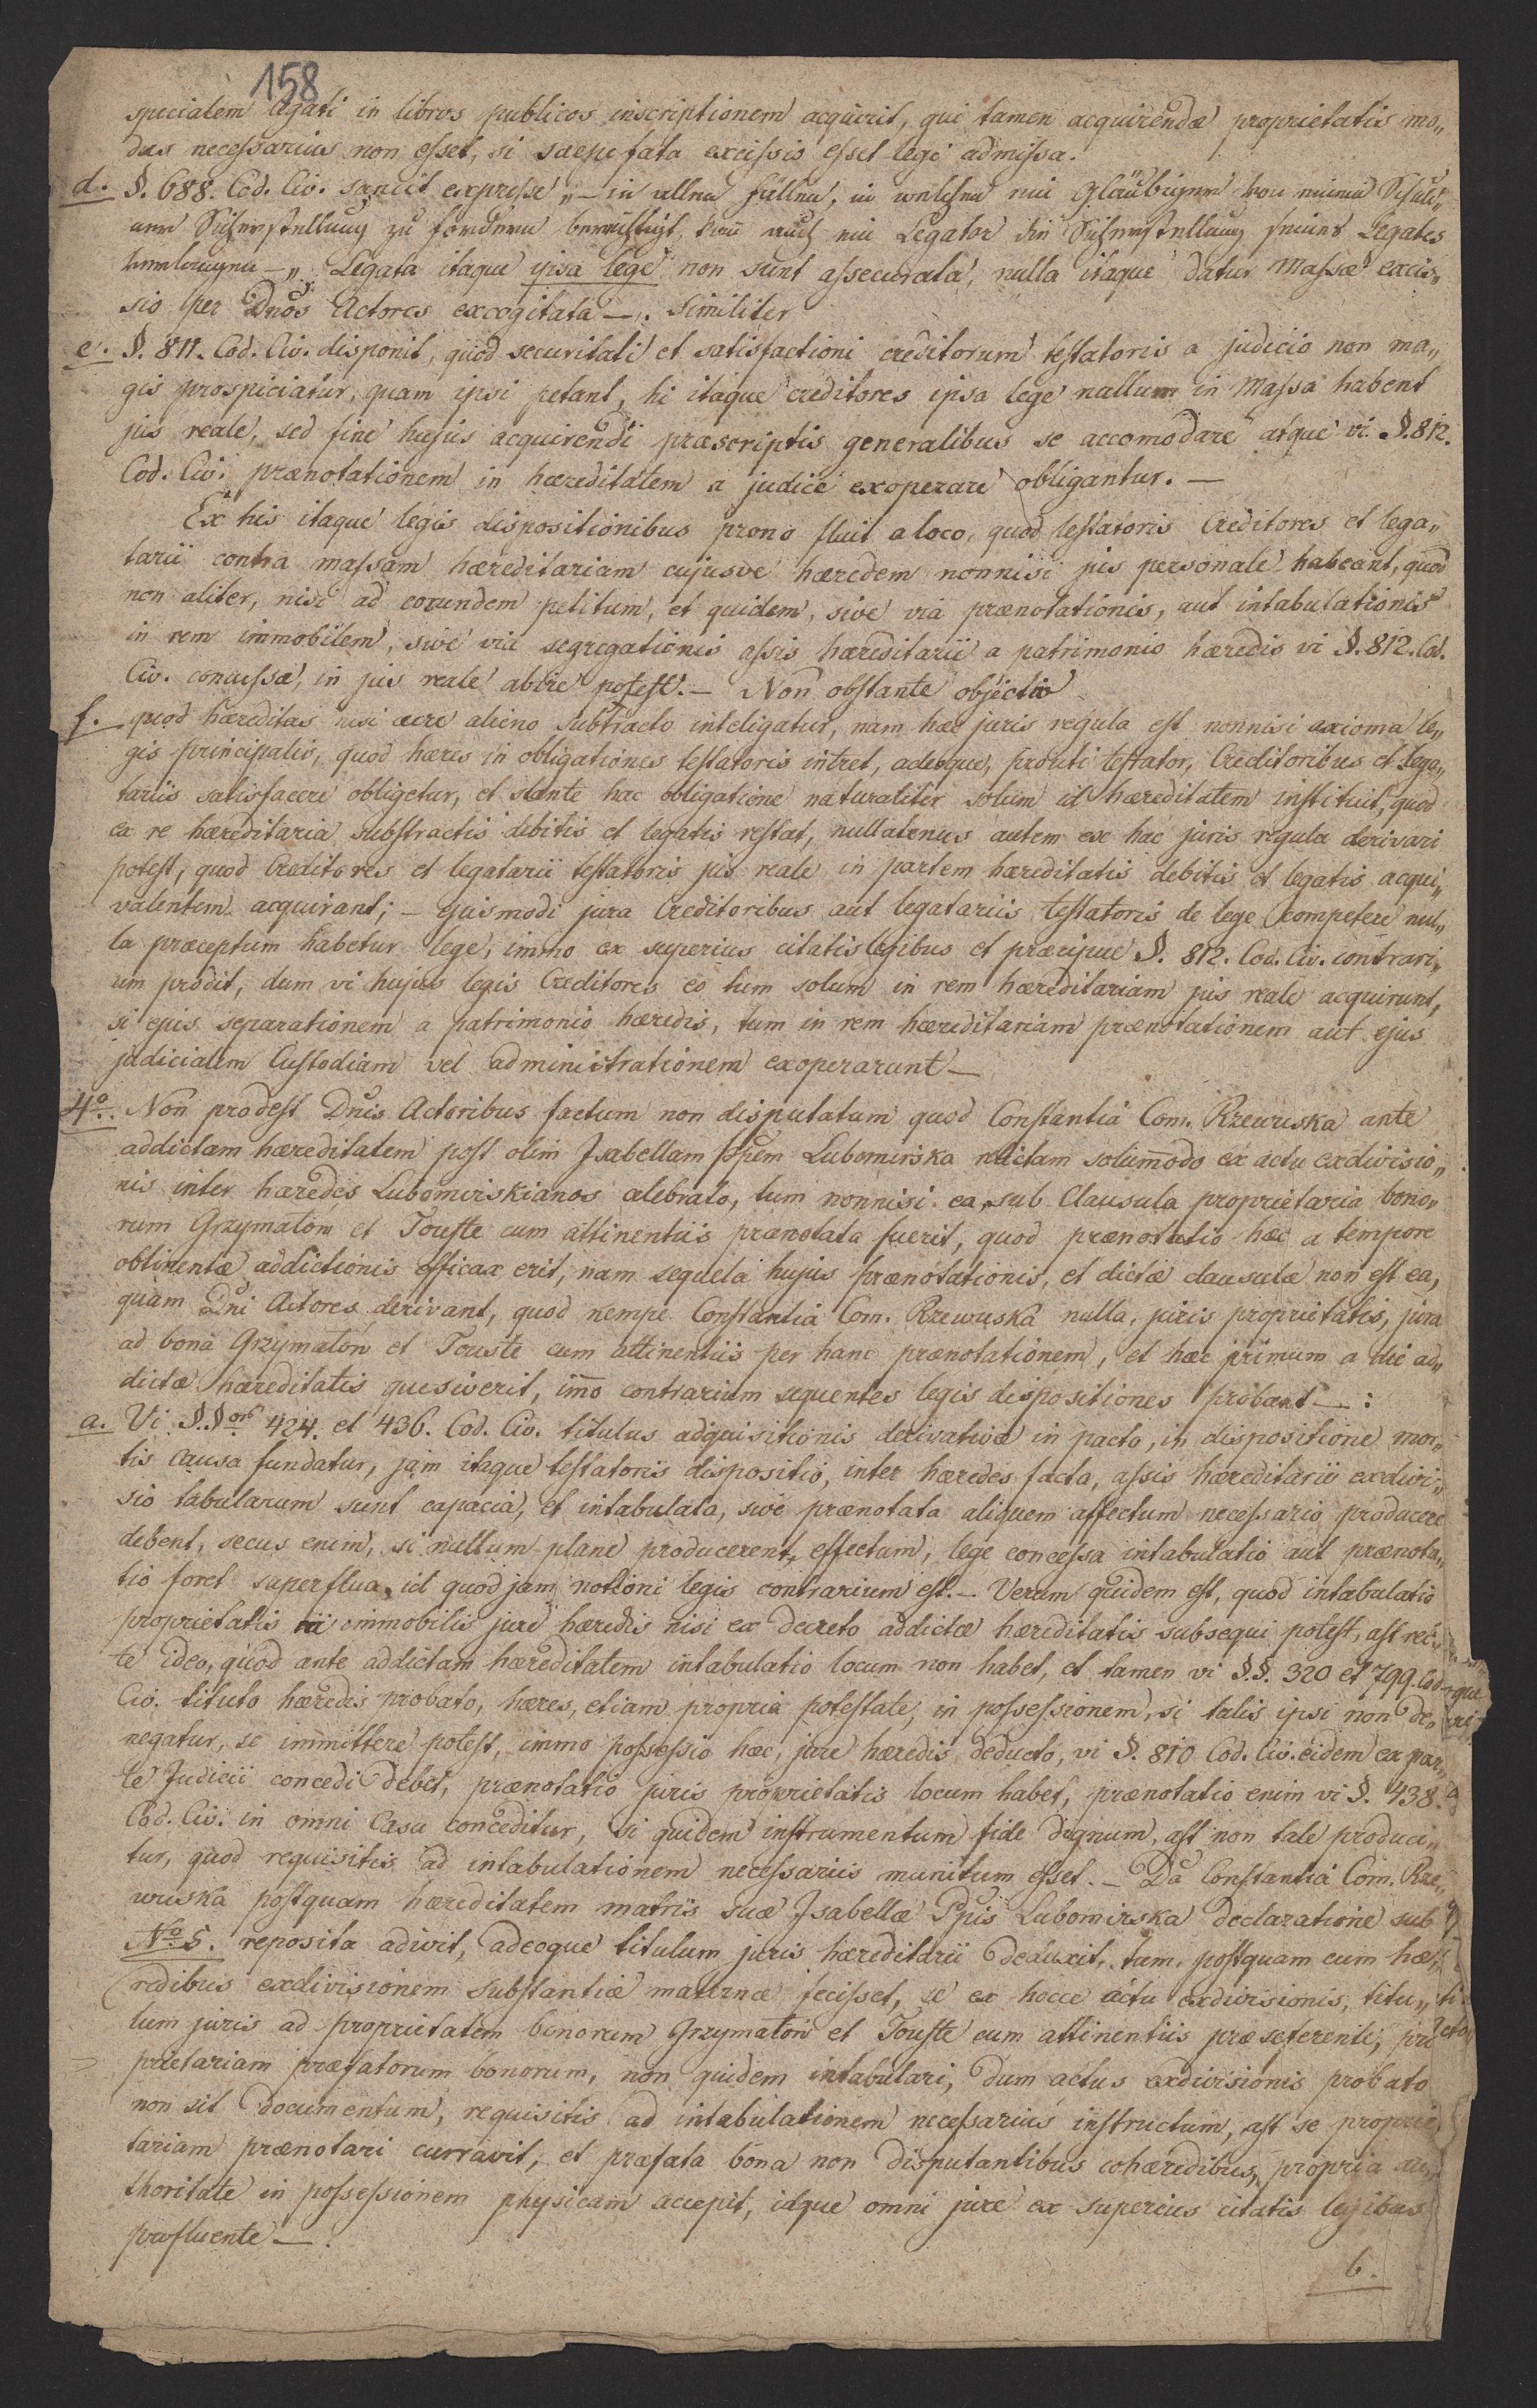 158
specialem legati in libros publicos inscriptionem acquirit, qui tamen acquirendæ proprietatis mo„
dus necessarius non esset, si saepefata excissio esset lege admissa.
d. §. 688. Cod. Civ. sancit expresse „– in allen Fällen, in welchen ein Gläubiger von einem Schuld„
ner Sicherstellung zu fordern berechtigt, kann auch ein Legatar die Sicherstellung seines Legates
verlangen –„ Legata itaque ipsa lege non sunt assecurata, nulla itaque datur Massæ excis„
sio per Dnos Actores excogitata –. Similiter
e. §. 811. Cod. Civ. disponit, quod securitati et satisfactioni creditorum testatoris a judicio non ma„
gis prospiciatur, quam ipsi petant, hi itaque creditores ipsa lege nullum in Massa habent
jus reale, sed fine hujus acquirendi præscriptis generalibus se accomodare atque vi §. 812.
Cod. Civ. prænotationem in hæreditatem a judice exoperare obligantur. –
Ex his itaque legis dispositionibus prono fluit aloco, quod testatoris Creditores et lega„
tarii contra massam hæreditariam cujusve hæredem nonnisi jus personale habeant, quod
non aliter, nisi ad eorundem petitum, et quidem, sive via prænotationis, aut intabulationis
in rem immobilem, sive via segregationis assis hæreditarii a patrimonio hæredis vi §. 812. Cod.
Civ. concessæ, in jus reale abire potest. – Non obstante objectio
f. quod hæreditas nisi aere alieno subtracto inteligatur, nam hæc juris regula est nonnisi axioma le„
gis principalis, quod hæres in obligationes testatoris intret, adeoque, prouti testator, Creditoribus et lega„
tariis satisfacere obligetur, et stante hac obligatione naturaliter solum id hæreditatem instituit, quod
ex re hæreditaria substractis debitis et legatis restat, nullatenus autem ex hac juris regula derivari
potest, quod Creditores et legatarii testatoris jus reale in partem hæreditatis debitis et legatis acqui„
valentem acquirant; – ejusmodi jura Creditoribus aut legatariis testatoris de lege competere nul„
la præceptum habetur lege, immo ex superius citatis legibus et præcipue §. 812. Cod. Civ. contrari„
um prodit, dum vi hujus legis Creditores eo tum solum in rem hæreditariam jus reale acquirunt,
si ejus separationem a patrimonio hæredis, tum in rem hæreditariam prænotationem aut ejus
judicialem Custodiam vel administrationem exoperarunt –
4º. Non prodest Dnis Actoribus factum non disputatum quod Constantia Com. Rzewuska ante
addictam hæreditatem post olim Isabellam Lubomirska relictam solummodo ex actu exdivisio„
nis inter hæredes Lubomirskianos celebrato, tum nonnisi ea, sub Clausula proprietaria bono„
rum Grzymałów et Touste cum attinentiis prænotata fuerit, quod prænotatio hæc a tempore
obtinentæ addictionis efficax erit, nam sequela hujus prænotationis, et dictæ clausulæ non est ea,
quam Dni Actores derivant, quod nempe Constantia Com. Rzewuska nulla, juris proprietatis, jura
ad bona Grzymałów et Touste cum attinentiis per hanc prænotationem, et hæc primum a die ad„
dictæ hæreditatis quesiverit, imo contrarium sequentes legis dispositiones probant –:
a. Vi §.§orū 424. et 436. Cod. Civ. titulus adquisitionis derivativæ in pacto, in dispositione mor„
tis causa fundatur, jam itaque testatoris dispositio, inter hæredes facta, assis hæreditarii exdivi„
sio tabularum sunt capacia, et intabulata, sive prænotata aliquem affectum necessario producere
debent, secus enim, si nullum plane producerent effectum, lege concessa intabulatio aut prænota„
tio foret superflua, id quod jam notioni legis contrarium est. – Verum quidem est, quod intabulatio
proprietatis rei immobilis jure hæredis nisi ex decreto addictæ hæreditatis subsequi potest, ast rec„
te ideo, quod ante addictam hæreditatem intabulatio locum non habet, et tamen vi §.§. 320 et 799. Cod.
Civ. titulo hæredis probato, hæres, etiam propria potestate, in possessionem, si talis ipsi non de„
negatur, se immittere potest, immo possessio hæc, jure hæredis deducto, vi §. 810 Cod. Civ. eidem ex par„
te Judicii concedi debet, prænotatio juris proprietatis locum habet, prænotatio enim vi §. 438.
Cod. Civ. in omni Casu conceditur, si quidem instrumentum fide dignum, ast non tale produci„
tur, quod requisitis ad intabulationem necessariis munitum esset. – Da Constantia Com. Rze„
wuska postquam hæreditatem matris suæ Isabellæ Ppis Lubomirska declaratione sub
No. 5. reposita adivit, adeoque titulum juris hæreditarii deduxit, tum, postquam cum hæ„
redibus exdivisionem substantiæ maternæ fecisset, se ex hocce actu exdivisionis, titu„
lum juris ad proprietatem bonorum Grzymałów et Touste cum attinentiis præseferenti, pro
prietariam præfatorum bonorum, non quidem intabulari, dum actus exdivisionis probato
non sit documentum, requisitis ad intabulationem necessarius instructum, ast se proprie„
tariam prænotari curravit, et præfata bona non disputantibus cohæredibus, propria au„
thoritate in possessionem physicam accepit, idque omni jure ex superius citatis legibus
profluente –.
b.